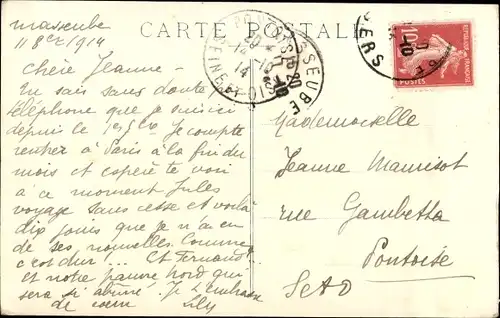 CARTE POSTALE
Masseube
11 8bre 1914
Chère Jeanne
Tu sais sans doute
téléphone que je suis ici
depuis le Je compte
rentrer à Paris à la fin du
mois et espère te voir
à ce moment Jules
voyage sans cesse et voilà
dix jours que je n'ai eu
de ses nouvelles. Comme
c'est dur!... Et Fernand...
et notre pauvre Nord qui
sera si abîmé. Je t'embrasse
de cœur Lily
Mademoiselle
Jeanne
rue Gambetta
Pontoise
S et O
MASSEUBE
GERS
SEINE ET OISE
10c
REPUBLIQUE FRANÇAISE
POSTES